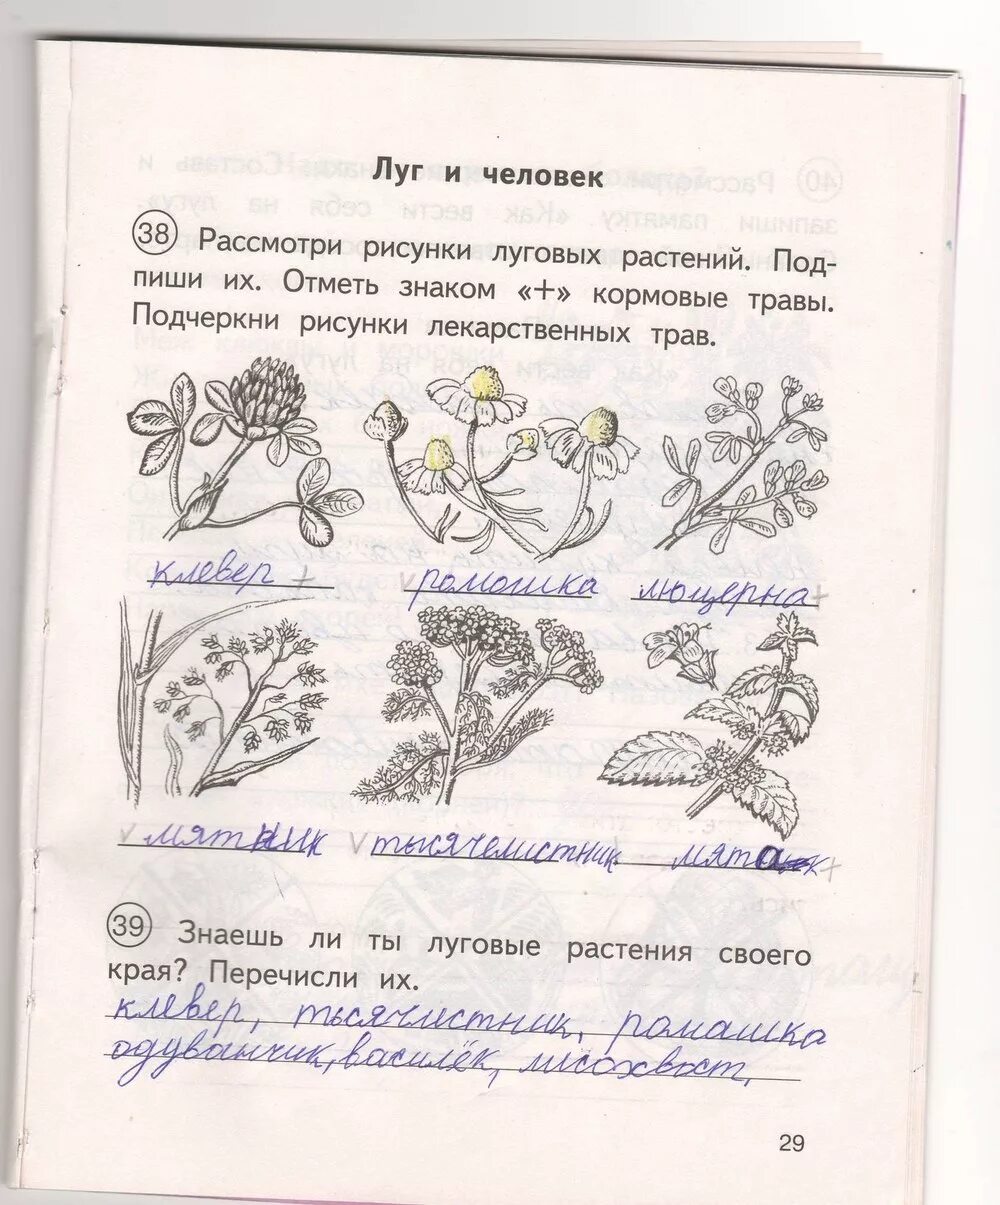 Луг и человек
38 Рассмотри рисунки луговых растений. Под-
пиши их. Отметь знаком «+» кормовые травы.
Подчеркни рисунки лекарственных трав.
клевер + v ромошка люцерна +
v мятник v тысячелистник мята +
39 Знаешь ли ты луговые растения своего
края? Перечисли их.
клевер, тысячлистник, ромашка
одуванчик, василёк, лисохвост,
29